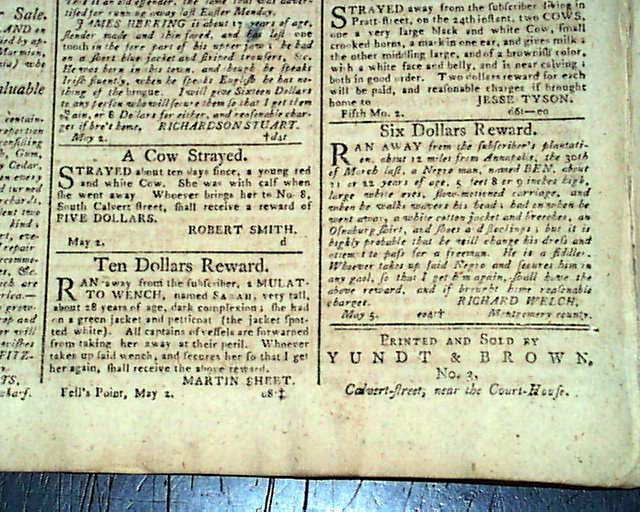 Sale.
AND on
valuable
contain-
Gum,
Cedar.
ed turned
tised for running away last Easter Monday.
JAMES HERING is about 17 years of age,
slender made and thin faced, and has lost one
tooth in the fore part of his upper jaw; he had
on a short blue jacket and striped trousers, &c.
He was born in this town, and though he speaks
Irish fluently, when he speaks English he has no-
thing of the brogue. I will give Sixteen Dollars
to any person who will secure them so that I get them
again, or 8 Dollars for either, and reasonable char-
ges if bro't home. RICHARDSON STUART.
May 2. †d4t
A Cow Strayed.
STRAYED about ten days since, a young red
and white Cow. She was with calf when
she went away Whoever brings her to No. 8,
South Calvert street, shall receive a reward of
FIVE DOLLARS.
ROBERT SMITH.
May 2, d
Ten Dollars Reward.
RAN away from the subscriber, a MULAT-
TO WENCH, named SARAH, very tall,
about 28 years of age, dark complexion; she had
on a green jacket and petticoat (the jacket spot-
ted white). All captains of vessels are forwarned
from taking her away at their peril. Whoever
takes up said wench, and secures her so that I get
her again, shall receive the above reward.
MARTIN SHEET.
Fell's Point, May 2. o8‡
STRAYED away from the subscriber living in
Pratt-street, on the 24th instant, two COWS,
one a very large black and white Cow, small
crooked horns, a mark in one ear, and gives milk;
the other middling large, and of a brownish color,
with a white face and belly, and is near calving;
both in good order. Two dollars reward for each
will be paid, and reasonable charges if brought
home to JESSE TYSON.
Fifth Mo. 2. d6t—eo
Six Dollars Reward.
RAN AWAY from the subscriber's plantati-
on, about 12 miles from Annapolis, the 30th
of March last, a Negro man, named BEN, about
21 or 22 years of age, 5 feet 8 or 9 inches high,
large white eyes, slow-motioned carriage, and
when he walks waves his head; had on when he
went away, a white cotton jacket and breeches, an
Osnaburg shirt, and shoes and stockings; but it is
highly probable that he will change his dress and
attempt to pass for a freeman. He is a fiddler.
Whoever takes up said Negro and secures him in
any gaol, so that I get him again, shall have the
above reward, and if brought home reasonable
charges. RICHARD WELCH.
May 5. eo4t† Montgomery county.
PRINTED AND SOLD BY
YUNDT & BROWN,
No. 3,
Calvert-street, near the Court-House.